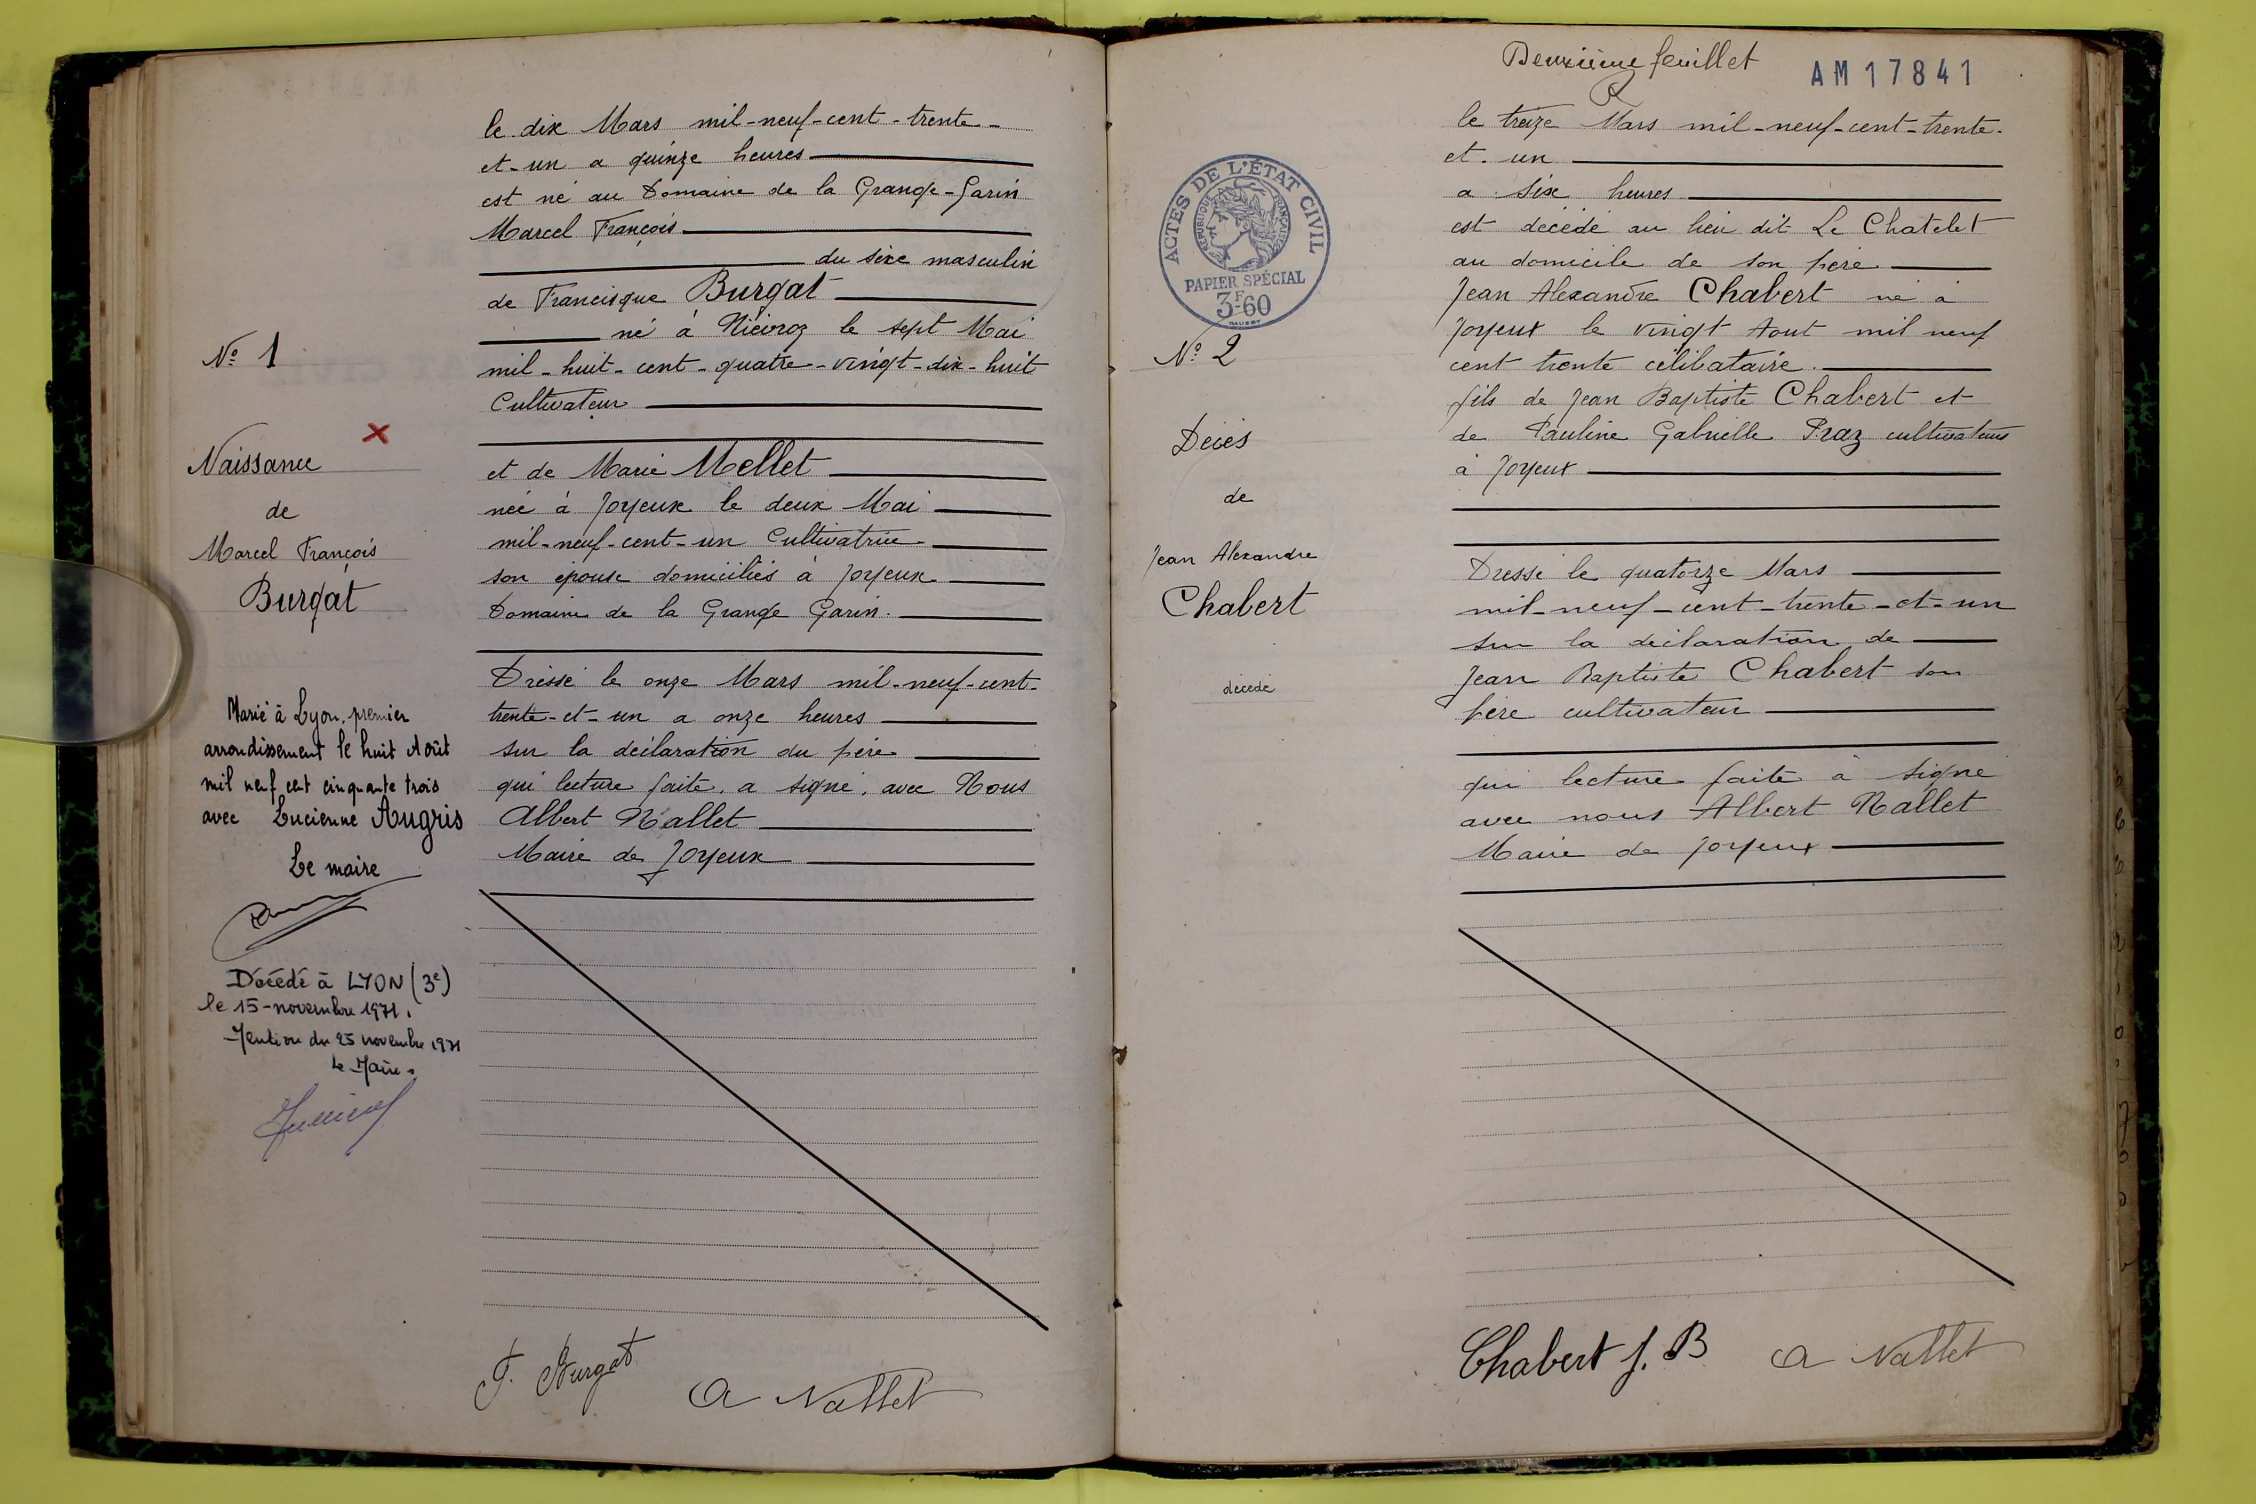 le dix Mars mil-neuf-cent-trente-
et-un a quinze heures
est né au Domaine de la Grange-Garin
Marcel François
du sexe masculin
de Francisque Burgat
né à Niévroz le sept Mai
mil-huit-cent-quatre-vingt-dix-huit
Cultivateur
et de Marie Mellet
née à Joyeux le deux Mai
mil-neuf-cent-un Cultivatrice
son épouse domiciliés à Joyeux
Domaine de la Grange Garin.
Dressé le onze Mars mil-neuf-cent-
trente-et-un a onze heures
sur la déclaration du père
qui lecture faite, a signé, avec Nous
Albert Nallet
Maire de Joyeux
N° 1
Naissance
de
Marcel François
Burgat
Marié à Lyon, premier
arrondissement le huit Août
mil neuf cent cinquante trois
avec Lucienne Augris
Le maire
Décédé à LYON (3e)
le 15-novembre 1971.
Mention du 25 novembre 1971
Le Maire.
F. Burgat
A Nallet
Deuxième feuillet
AM17841
ACTES DE L'ÉTAT CIVIL
RÉPUBLIQUE FRANÇAISE
PAPIER SPÉCIAL
3F-60
N° 2
Décès
de
Jean Alexandre
Chabert
décédé
le treize Mars mil-neuf-cent-trente-
et-un
a six heures
est décédé au lieu dit Le Chatelet
au domicile de son père
Jean Alexandre Chabert né à
Joyeux le vingt Aout mil neuf
cent trente célibataire.
fils de Jean Baptiste Chabert et
de Pauline Gabrielle Praz cultivateurs
à Joyeux
Dressé le quatorze Mars
mil-neuf-cent-trente-et-un
sur la déclaration de
Jean Baptiste Chabert son
père cultivateur
qui lecture faite à signé
avec nous Albert Nallet
Maire de Joyeux
Chabert J. B
A Nallet